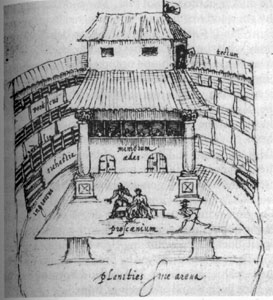 tectum
porticus
sedilia
orchestra
ingressus
mimorum
ædes
proscænium
planities siue arena